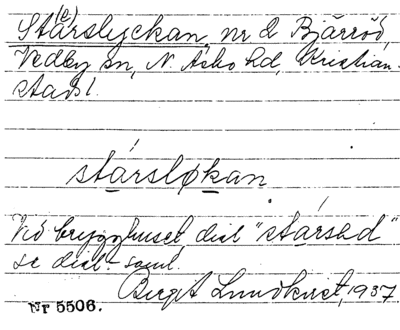 St(e)årslyckan, nr 2 Bjärröd,
Vedby sn, N. Åsbo hd, Kristian-
stads l.
stársløkan
Vid brygghuset, dial "stársd"
se dial.-saml.
Birgit Lundkvist, 1937
Nr 5506.